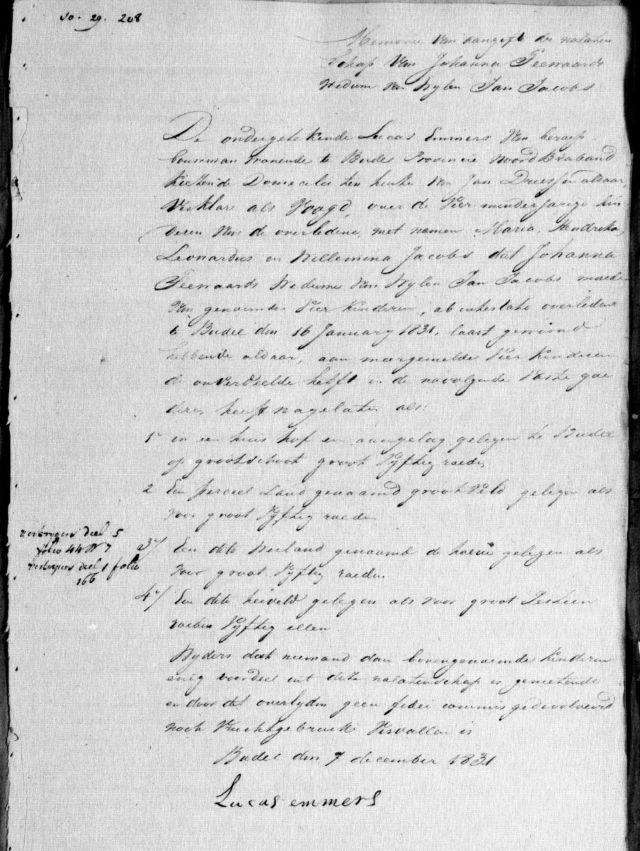 No. 29. 208
Memorie van aangifte der nalaten
schap van Johanna Teewaards
Weduwe van Wylen Jan Jacobs
De ondergetekende Lucas Emmers van beroep
bouwman wonende te Budel Provincie Noord Braband
kiesende Domicilie ten huize van Jan Driessen aldaar,
Verklare als Voogd, over de Vier minderjarige kin
deren van de overledene, met namen Maria, Hendreka
Leonardus en Willemina Jacobs dat Johanna
Teewaards Weduwe van Wylen Jan Jacobs moeder
van genoemde Vier kinderen, ab intestato overleden
te Budel den 16 January 1831, laast gewoond
hebbende aldaar, aan meergemelde Vier kinderen
de onverdeelde helft in de navolgende Vaste goe
deren heeft nagelaten als:
1º in een huis hof en aangelag gelegen te Budel
op grootschoot groot Vyftig roeden
2 Een perceel Land genaamd groot Veld gelegen als
voor groot Vyftig roeden
verkregen deel 5
folio 44 Nº 7
deel 1 folio
166
3º/ Een dito Weiland genaamd de gelegen als
voor groot Vyftig roeden
4º/ Een dito heiveld gelegen als voor groot Sestien
roeden Vyftig ellen
Wyders dat niemand dan bovengenoemde kinderen
enig voordeel uit deze nalatenschap is genietende
en door dit overlyden geen fidei commis gedevolveerd
noch Vruchtgebruik Vervallen is
Budel den 7 december 1831
Lucas emmers